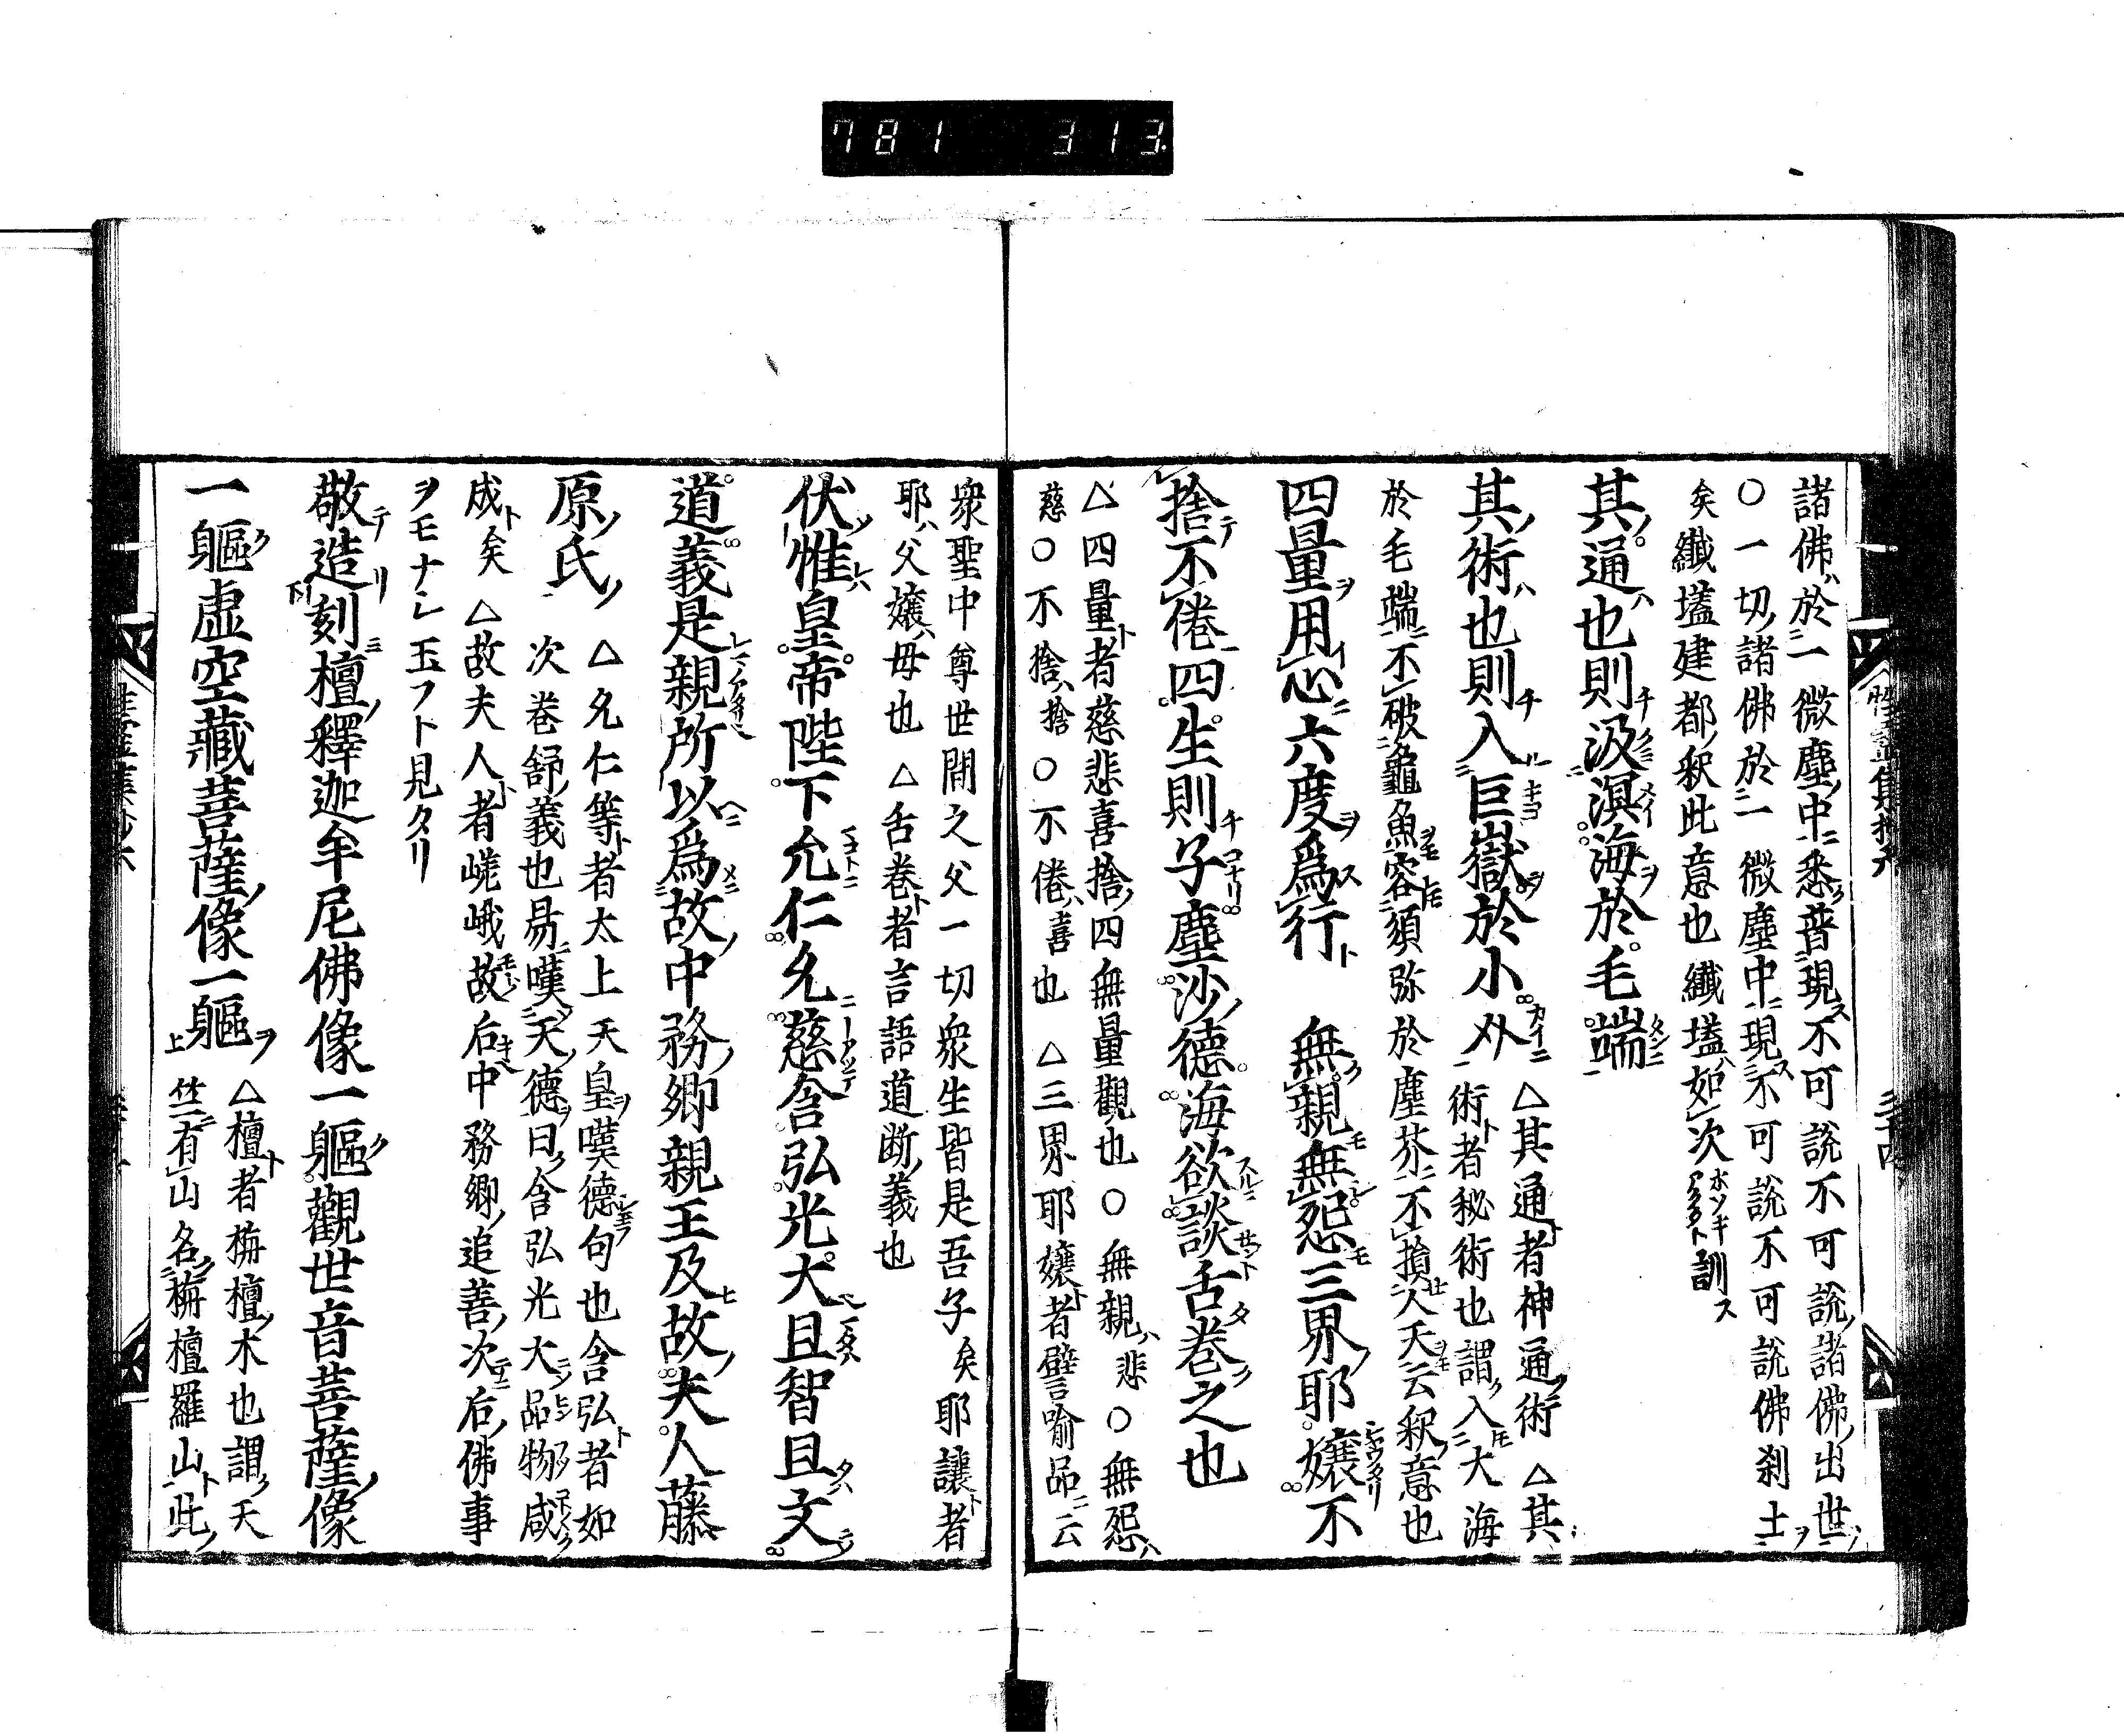 781 313.
諸佛於一微塵中悉普現不可說不可說諸佛出世
○一切諸佛於一微塵中現不可說不可說佛刹土
矣纖壒建都釈此意也纖壒如次ホソキアクタト訓ス
其通也則汲溟海於毛端
其術也則入巨嶽於小㸚
△其通者神通術△其
術者秘術也謂入大海
於毛端不破龜魚容須弥於塵芥不損人天云釈意也
四量用心六度為行 無親無怨三界耶孃不
捨不倦四生則子塵沙德海欲談舌卷之也
△四量者慈悲喜捨四無量觀也○無親悲○無怨
慈○不捨捨○不倦喜也△三界耶孃者譬喻品云
衆聖中尊世間之父一切衆生皆是吾子矣耶讓者
耶父孃母也△舌卷者言語道断義也
伏惟皇帝陛下允仁允慈含弘光大且智且文
道義是親所以為故中務卿親王及故夫人藤
原氏
△允仁等者太上天皇嘆德句也含弘者如
次卷舒義也易嘆天德曰含弘光大品物咸
成矣△故夫人者嵯峨故后中務卿追善次后佛事
ヲモナシ玉フト見タリ
敬造刻檀釋迦牟尼佛像一軀觀世音菩薩像
一軀虛空藏菩薩像一軀
△檀者栴檀木也謂天
竺有山名栴檀羅山此